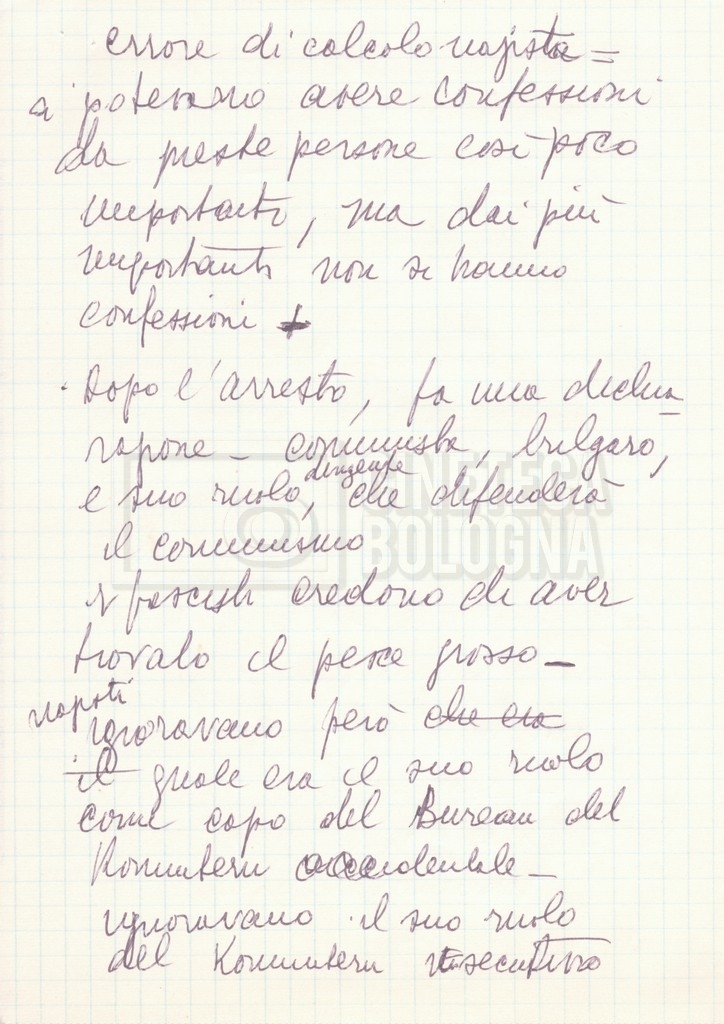 errore di calcolo nazista =
si potevano avere confessioni
da queste persone così poco
importanti, ma dai più
importanti non si hanno
confessioni +
· Dopo l'arresto, fa una dichia
razione – comunista, bulgaro,
dirigente
e suo ruolo, che difenderà
il comunismo
I fascisti credono di aver
trovato il pesce grosso –
nazisti
ignoravano però che era
il quale era il suo ruolo
come capo del Bureau del
Komintern occidentale –
ignoravano il suo ruolo
del Komintern esecutivo
CINETECA
BOLOGNA